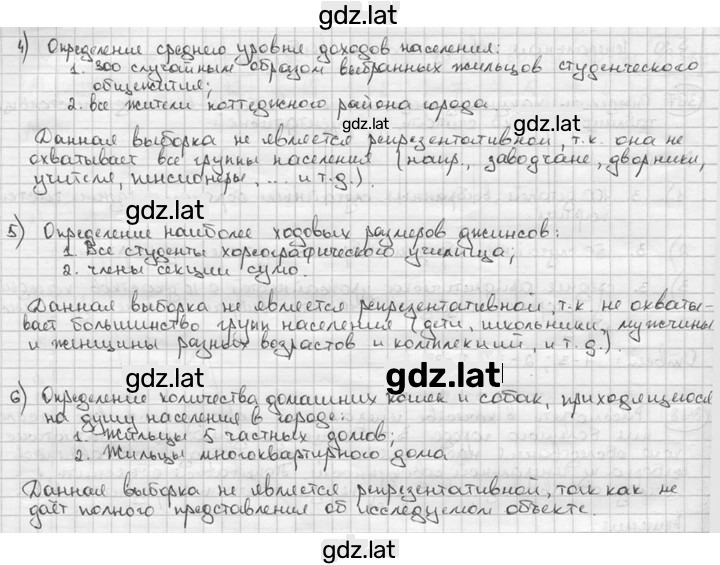 gdz.lat
4) Определение среднего уровня доходов населения:
1. 300 случайным образом выбранных жильцов студенческого
общежития;
2. все жители коттеджного района города
gdz.lat
gdz.lat
Данная выборка не является репрезентативной, т.к. она не
охватывает все группы населения (напр., заводчане, дворники,
учителя, пенсионеры, ... и т.д.).
gdz.lat
5) Определение наиболее ходовых размеров джинсов:
1. Все студенты хореографического училища;
2. члены секции сумо.
gdz.lat
Данная выборка не является репрезентативной, т.к не охваты-
вает большинство групп населения (дети, школьники, мужчины
и женщины разных возрастов и комплекций, и т.д.).
gdz.lat
gdz.lat
6) Определение количества домашних кошек и собак, приходящегося
на душу населения в городе:
1. Жильцы 5 частных домов;
2. Жильцы многоквартирного дома
gdz.lat
Данная выборка не является репрезентативной, так как не
даёт полного представления об исследуемом объекте.
gdz.lat